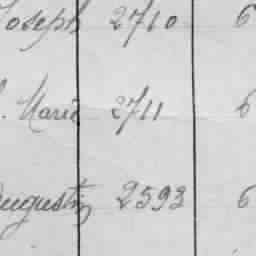 Joseph 2710 6
. Marie 2711 6
Augustin 2593 6